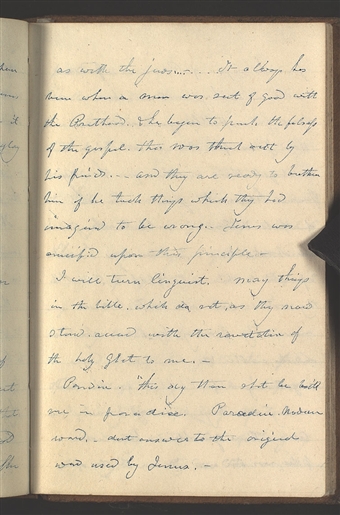 as with the jews.--... It always has
been when a man was sent of God with
the Priesthood. & he began to preach the fulness
of the gospel. that was thrust out by
his friends.-- and they are ready to butcher
him if he teach things which they had
imagined to be wrong. Jesus was
crucified upon this principle--
I will turn linguist. many things
in the bible. which do not, as they now
stand. accord with the revelation of
the holy Ghost to me.--
Paradise. "this day thou shalt be with
me in paradise. Paradise. Modern
word.-- dont answer to the original
word used by Jesus.--